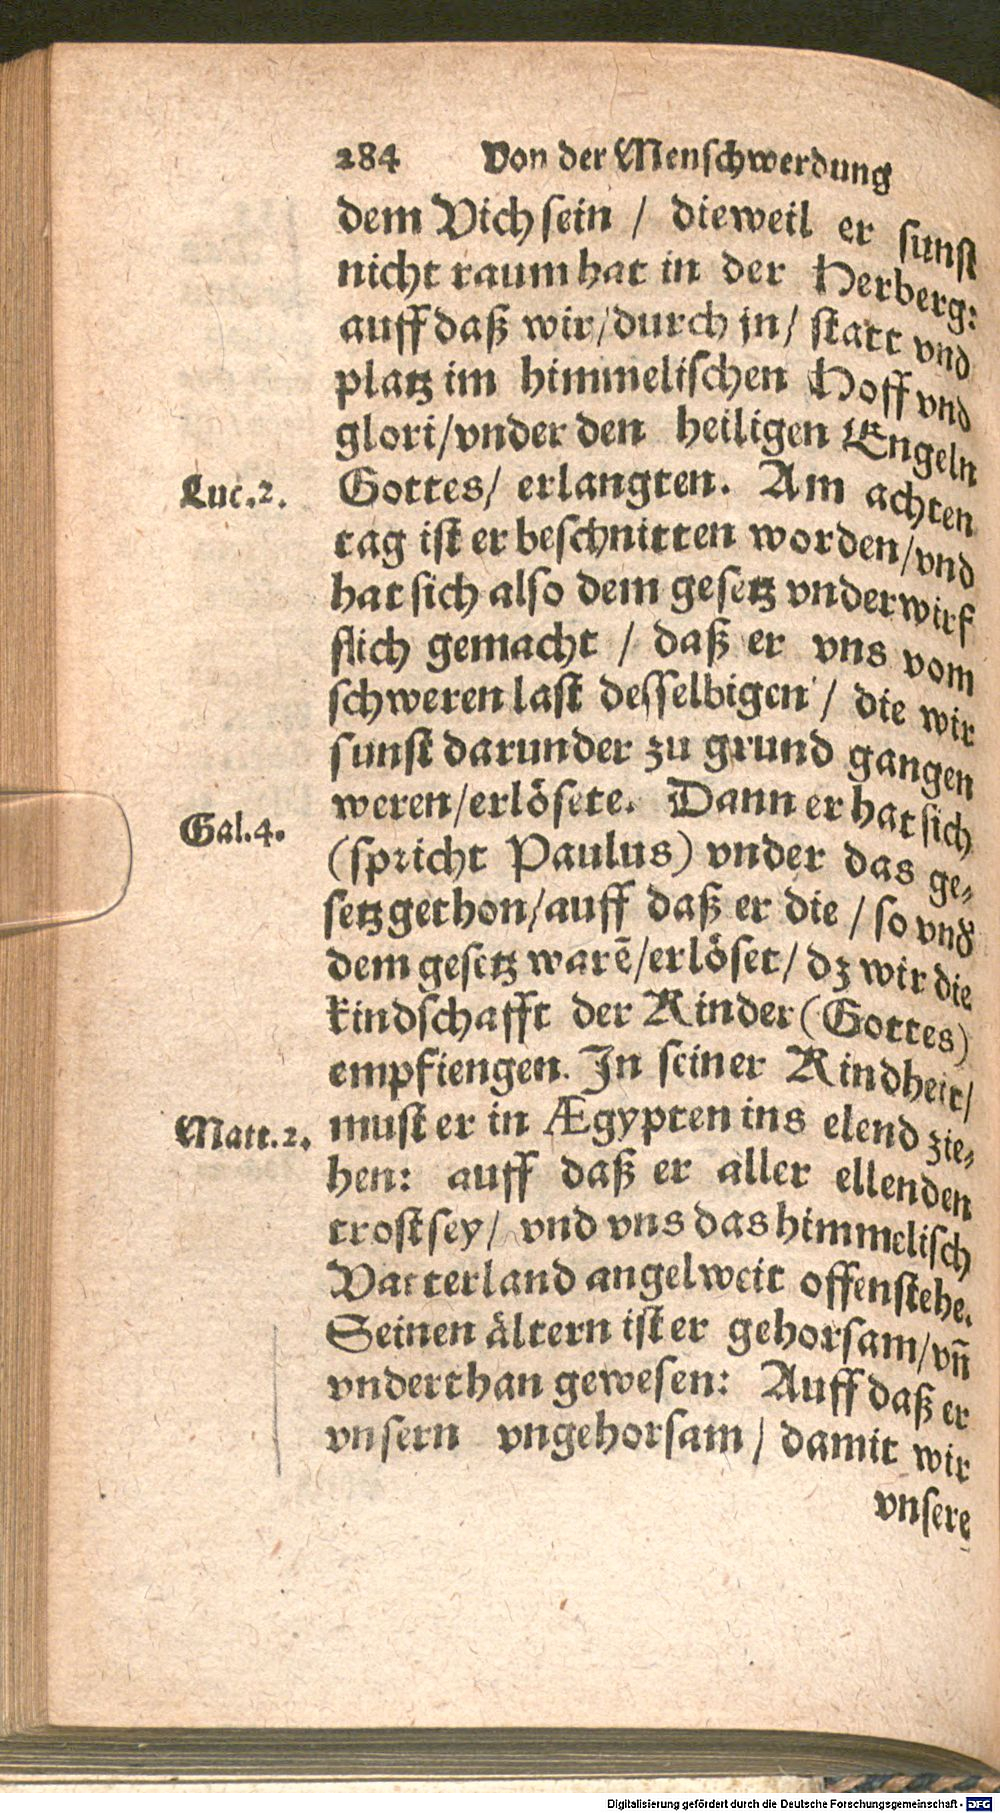 284 Von der Menschwerdung
dem Vich sein / dieweil er sunst
nicht raum hat in der Herberg:
auff daß wir/durch jn/ statt vnd
platz im himmelischen Hoff vnd
glori/vnder den heiligen Engeln
Luc.2. Gottes/ erlangten. Am achten
tag ist er beschnitten worden/vnd
hat sich also dem gesetz vnderwirf
flich gemacht / daß er vns vom
schweren last desselbigen / die wir
sunst darunder zu grund gangen
weren/erlösete. Dann er hat sich
Gal.4. (spricht Paulus) vnder das ge-
setz gethon/auff daß er die / so vnd
dem gesetz warē/erlöset/ dz wir die
kindschafft der Kinder (Gottes)
empfiengen. In seiner Kindheit/
Matt.2. must er in Ægypten ins elend zie-
hen: auff daß er aller ellenden
trost sey/ vnd vns das himmelisch
Vatterland angelweit offenstehe.
Seinen ältern ist er gehorsam/vñ
vnderthan gewesen: Auff daß er
vnsern vngehorsam / damit wir
vnsere
Digitalisierung gefördert durch die Deutsche Forschungsgemeinschaft - DFG